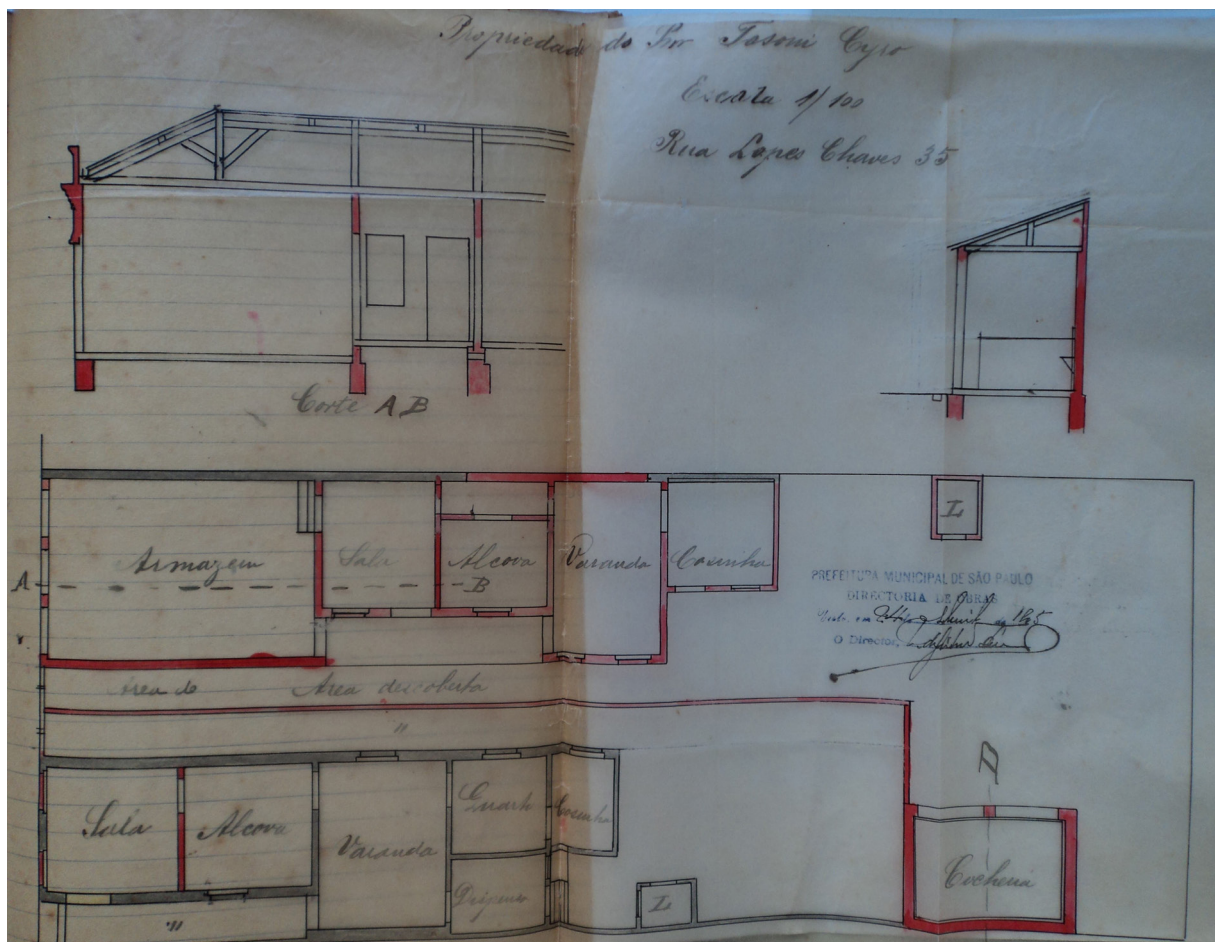 Propriedade do Snr Tasoni Cyro
Escala 1/100
Rua Lopes Chaves 35
Corte A B
Armazem
Sala
Alcova
Varanda
Cosinha
L
A
B
PREFEITURA MUNICIPAL DE SÃO PAULO
DIRECTORIA DE OBRAS
O Director,
Area de
Area descoberta
"
Sala
Alcova
Varanda
Quarto
Cosinha
L
Cocheira
"